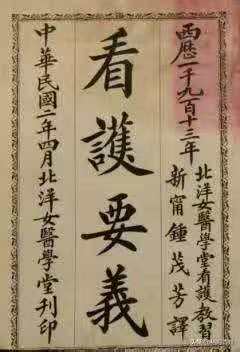 西歷一千九百十三年
北洋女醫學堂看護教習
新甯鍾茂芳譯
看護要義
中華民國二年四月北洋女醫學堂刊印